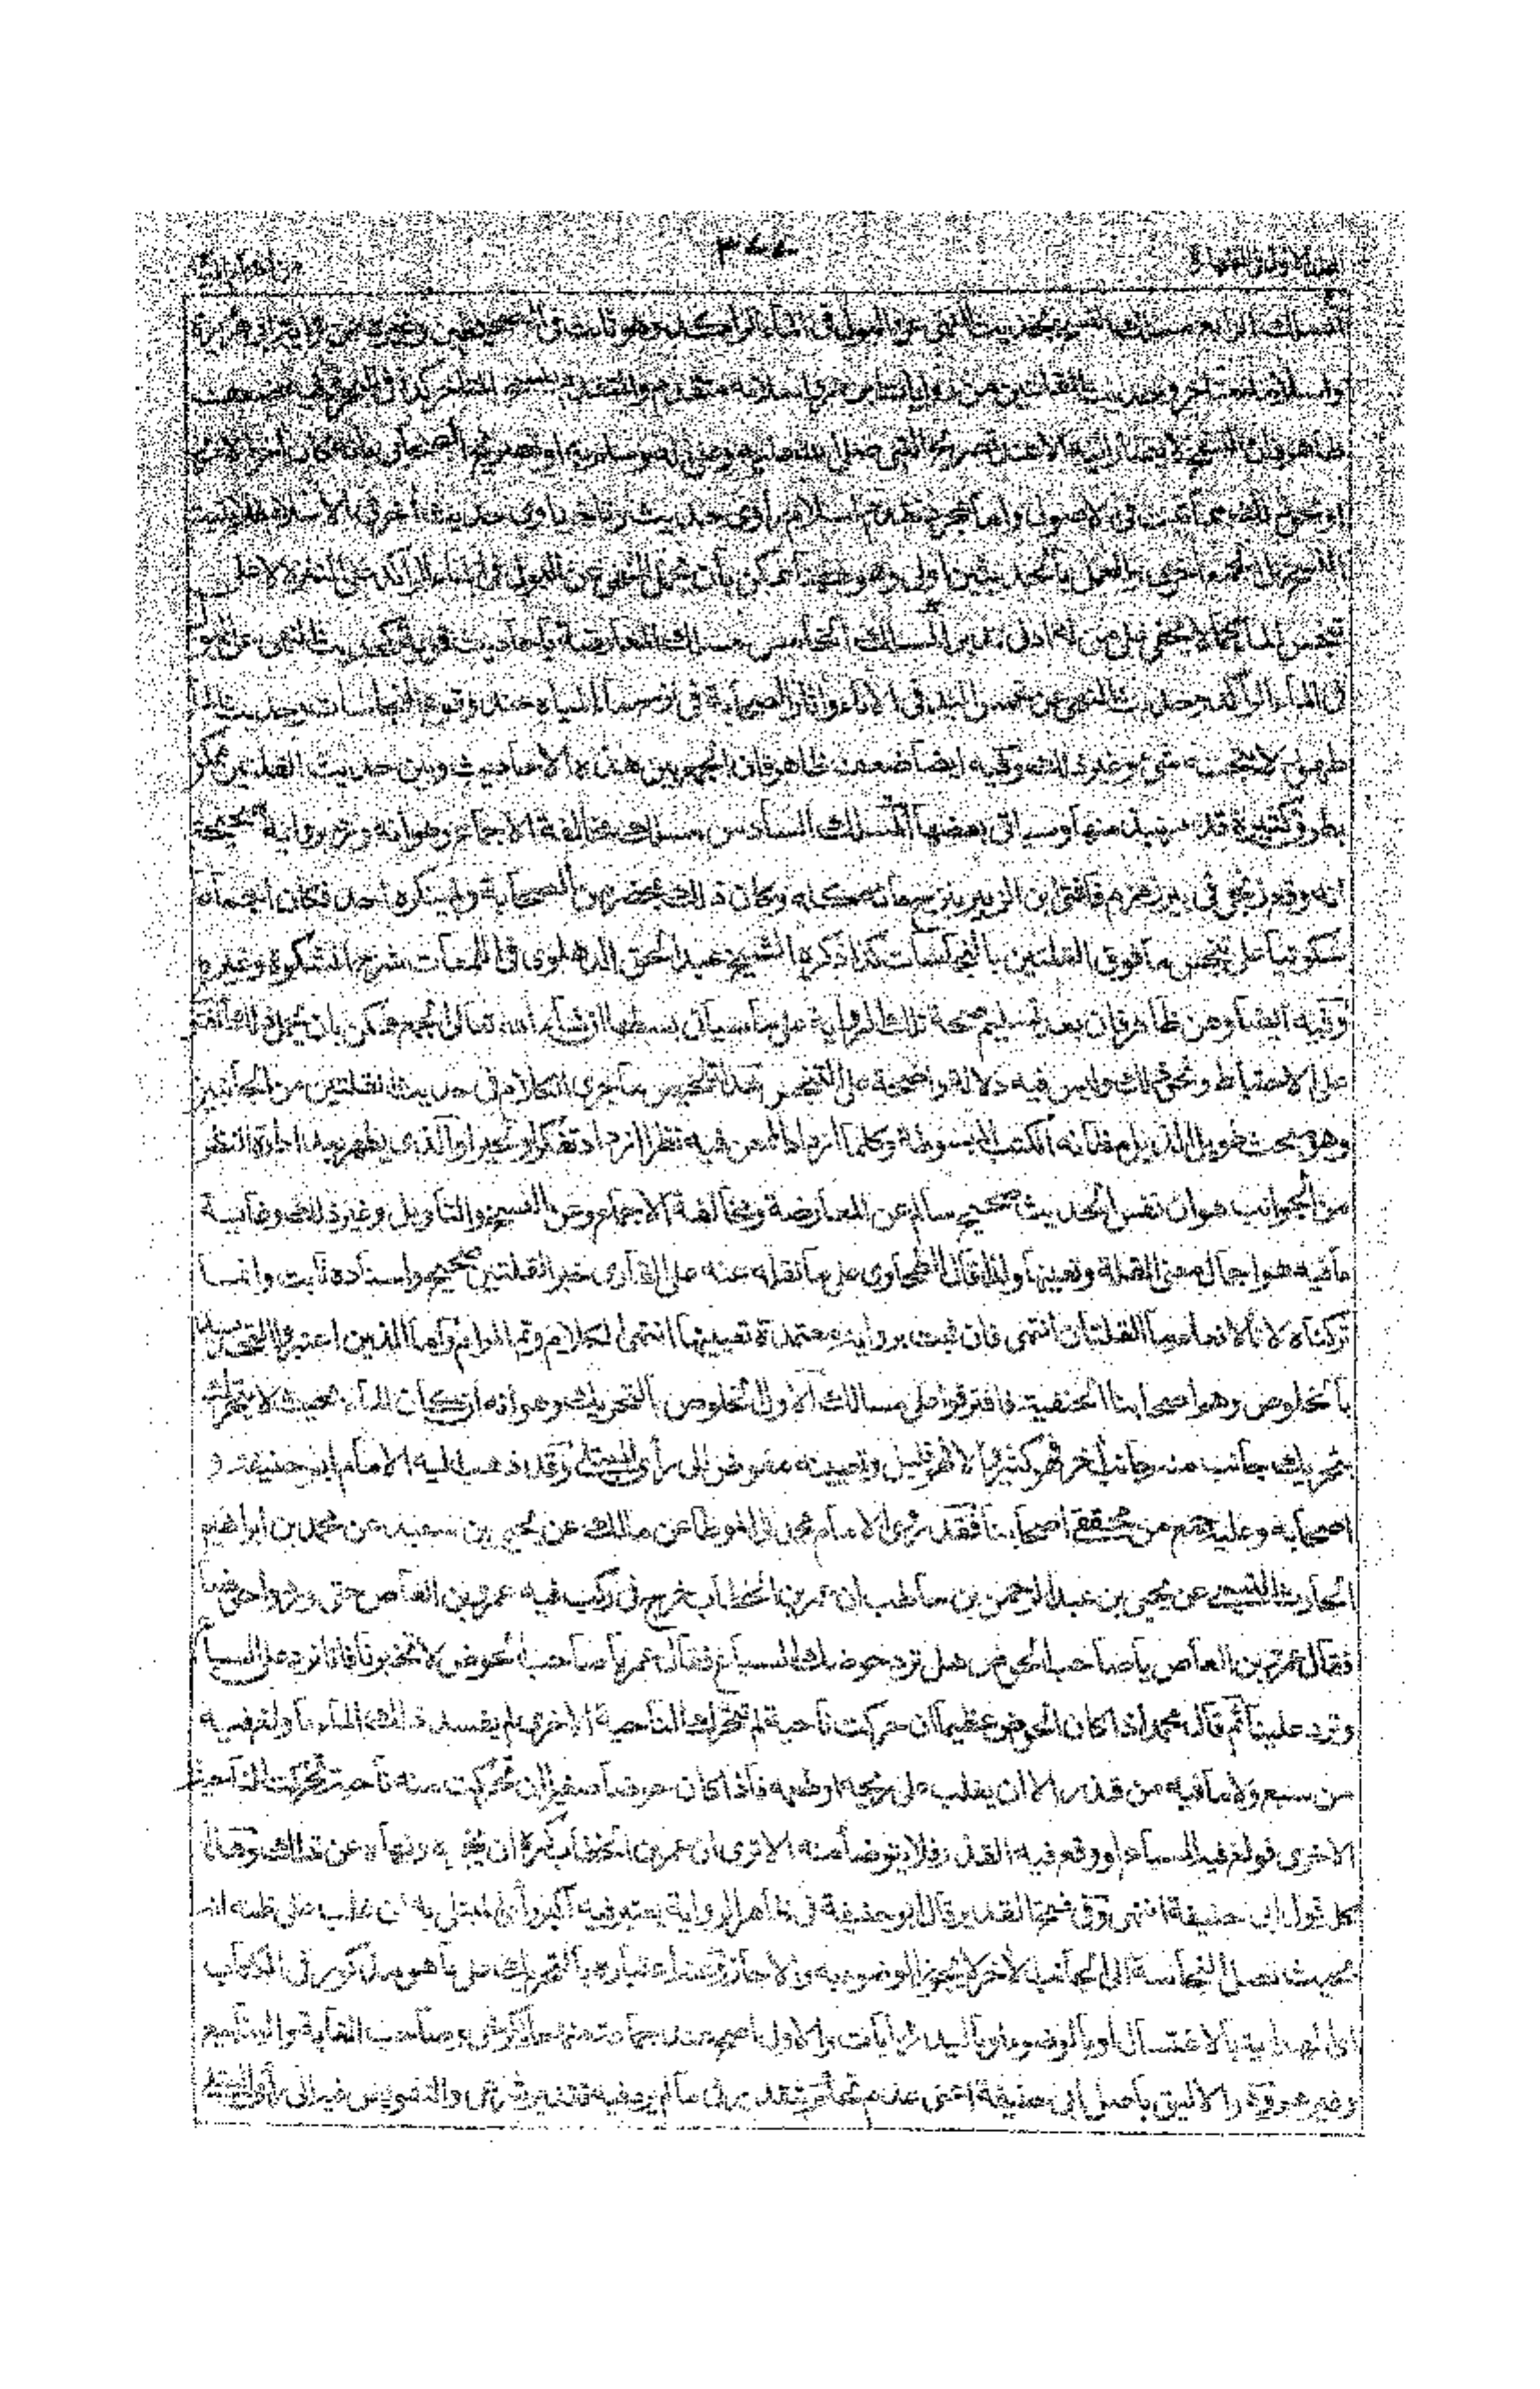 ٣٧٧
المسلك الرابع مسلك النسخ بحديث النهي عن البول في الماء الراكد وهو ثابت في الصحيحين وغيره من رواية ابي هريرة
واسلامه متاخر وحديث القلتين من روايات ابن عمر واسلامه متقدم والمتقدم ينسخه المتاخر كذا في وفيه ضعف
ظاهر فان النسخ لا يصار اليه الا عند تصريح النبي صلى الله عليه وعلى اله وسلم به او تصريح الصحابي بانه كان اخر الامرين
او نحو ذلك مما ثبت في الاصول واما مجرد تقدم اسلام راوي حديث وتاخر راوي حديث اخر في الاسلام فلا يثبت
النسخ والعمل بالحديثين اولى وهو ههنا ممكن بان يحمل النهي عن البول في الماء الراكد على التنزه لا على
تنجس الماء كما لا يخفى على من له ادنى تدبر المسلك الخامس مسلك المعارضة باحاديث قوية كحديث النهي عن البول
في الماء الراكد وحديث النهي عن غمس اليد في الاناء واثار الصحابة في نزح المياه عند وقوع النجاسات وحديث الماء
طهور لا ينجسه شيء وغير ذلك وفيه ايضا ضعف ظاهر فان الجمع بين هذه الاحاديث وبين حديث القلتين ممكن
بطرق كثيرة قد مر نبذ منها وسياتي بعضها المسلك السادس مسلك مخالفة الاجماع وهو انه ورد برواية صحيحة
انه وقع زنجي في بير زمزم فافتى ابن الزبير بنزح مائه كله وكان ذلك بمحضر من الصحابة ولم ينكره احد فكان اجماعا
سكوتيا على تنجس ما فوق القلتين بالنجاسات كذا ذكره الشيخ عبد الحق الدهلوي في اللمعات شرح المشكوة وغيره
وفيه ايضا وهن ظاهر فان بعد تسليم صحة تلك الرواية على ما سياتي بسطها ان شاء الله تعالى الجمع ممكن بان يحمل ذلك
على الاحتياط ونحو ذلك وليس فيه دلالة واضحة على التنجس هذا تلخيص ما جرى الكلام في حديث القلتين من الجانبين
وهو بحث طويل الذيل مظانه الكتب المبسوطة وكلما ازداد الممعن فيه نظرا ازداد تفكرا وتحيرا والذي يظهر بعد ادارة النظر
من الجوانب هو ان نفس الحديث صحيح سالم عن المعارضة ومخالفة الاجماع وعن النسخ والتاويل وغير ذلك وغاية
ما فيه هو اجمال معنى القلة وتعيينها ولذا قال الطحاوي على ما نقله عنه علي القاري خبر القلتين صحيح واسناده ثابت وانما
تركناه لانا لا نعلم ما القلتان انتهى فان ثبت برواية معتمدة تعيينها انتهى الكلام وتم المرام واما الذين اعتبروا التحديد
بالخلوص وهم اصحابنا الحنفية فافترقوا على مسالك الاول الخلوص بالتحريك وهو انه ان كان الماء بحيث لا يتحرك
بتحريك جانب منه جانب اخر فهو كثير والا فهو قليل وتعيينه مفوض الى رأي المبتلى وقد ذهب اليه الامام ابو حنيفة و
اصحابه وعليه جمع من محققي اصحابنا فقد روى الامام محمد في الموطا عن مالك عن يحيى بن سعيد عن محمد بن ابراهيم
الحارث التيمي عن يحيى بن عبد الرحمن بن حاطب ان عمر بن الخطاب خرج في ركب فيه عمرو بن العاص حتى وردوا حوضا
فقال عمرو بن العاص يا صاحب الحوض هل ترد حوضك السباع فقال عمر يا صاحب الحوض لا تخبرنا فانا نرد على السباع
وترد علينا ثم قال محمد اذا كان الحوض عظيما ان حركت ناحية لم تتحرك الناحية الاخرى لم يفسد ذلك الماء ما ولغ فيه
من سبع ولا ما وقع فيه من قذر الا ان يغلب على ريحه او طعمه فاذا كان حوضا صغيرا ان تحركت منه ناحية تحركت الناحية
الاخرى فولغ فيه السباع او وقع فيه القذر فلا يتوضأ منه الا ترى ان عمر بن الخطاب كره ان يخبره ونهاه عن ذلك وهذا
كله قول ابي حنيفة انتهى وفي فتح القدير قال ابو حنيفة في ظاهر الرواية يعتبر فيه اكبر رأي المبتلى به ان غلب على ظنه انه
بحيث تصل النجاسة الى الجانب الاخر لا يجوز الوضوء به والا جاز وعنه اعتباره بالتحريك على ما هو مذكور في الكتاب
اي الهداية بالاغتسال او بالوضوء او باليد روايات والاول اصح عند جماعة منهم الكرخي وصاحب الغاية والينابيع
وغيرهم وهو الاليق باصل ابي حنيفة اعني عدم التحكم بتقدير في ما لم يرد فيه تقدير شرعي والتفويض فيه الى رأي المبتلى